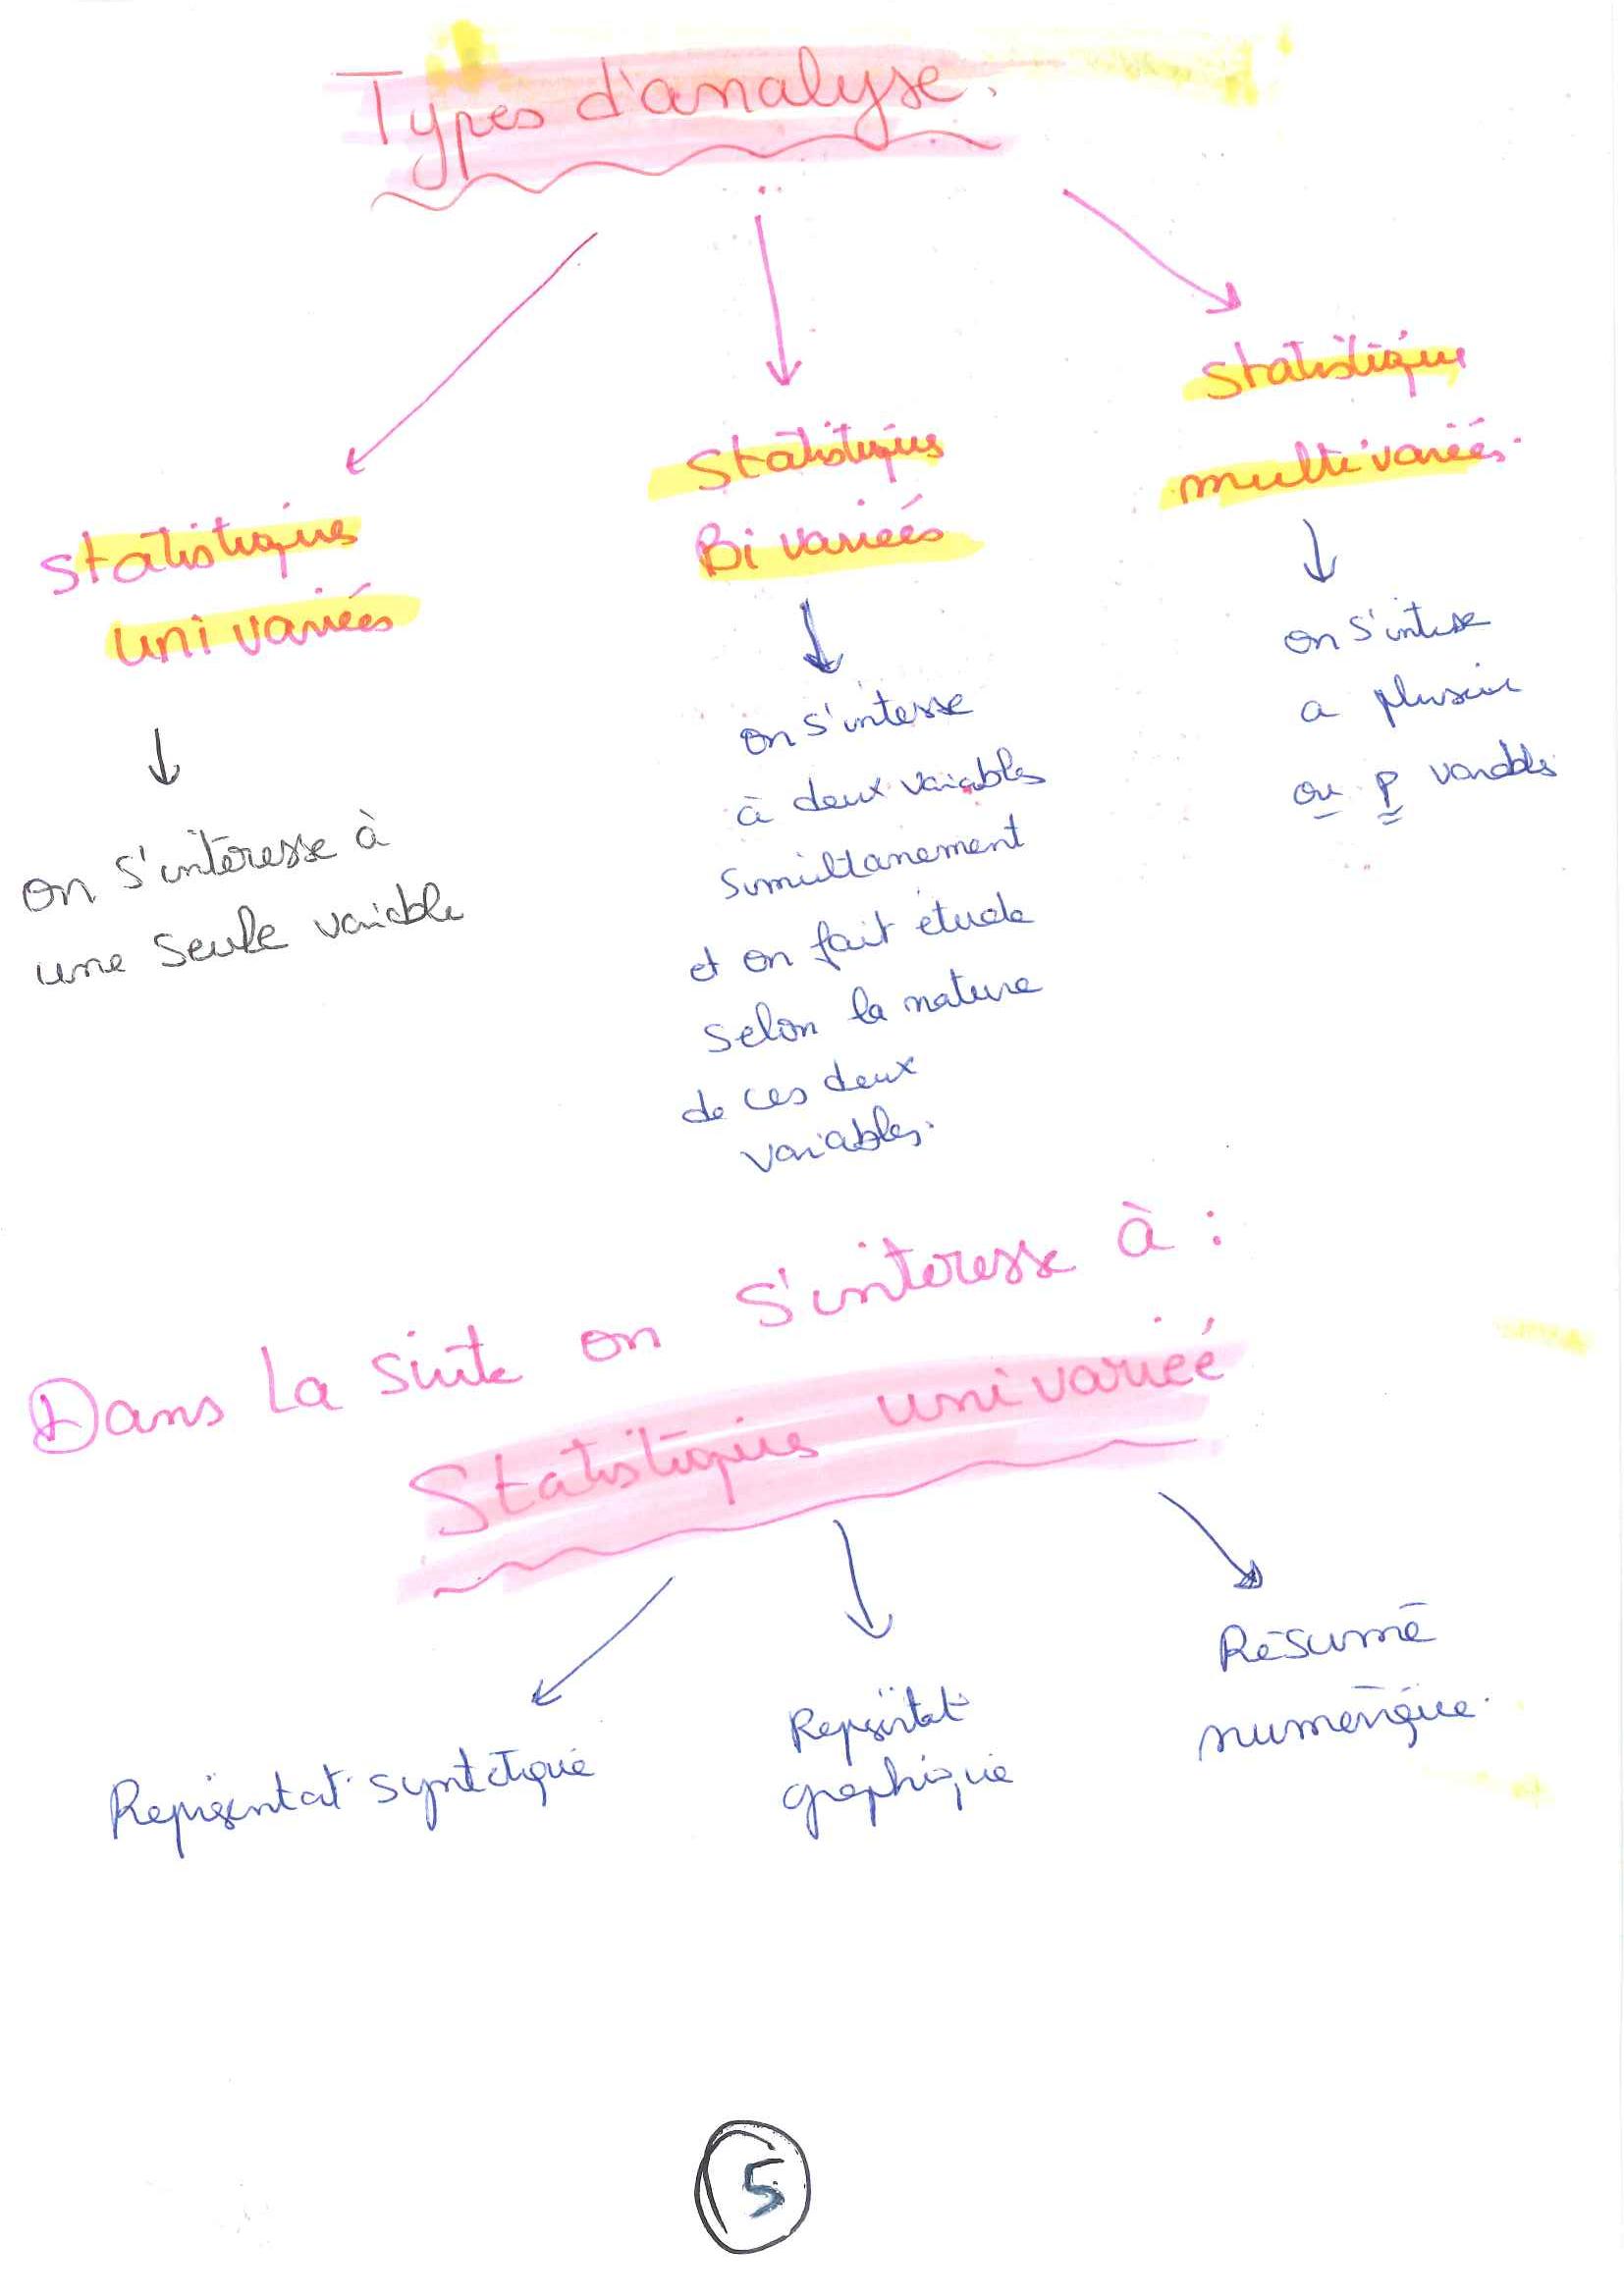 Types d'analyse.
Statistiques
uni variées
on s'intèresse à
une seule variable
Statistiques
Bi variées
on s'intesse
à deux variables
simultanement
et on fait étude
selon la nature
de ces deux
variables.
Statistique
multivariées.
on s'intesse
a plusieur
ou p variables
Dans la suite on s'interesse à :
Statistiques univariée
Représentat° syntétique
graphique
Résumé
numérique.
5